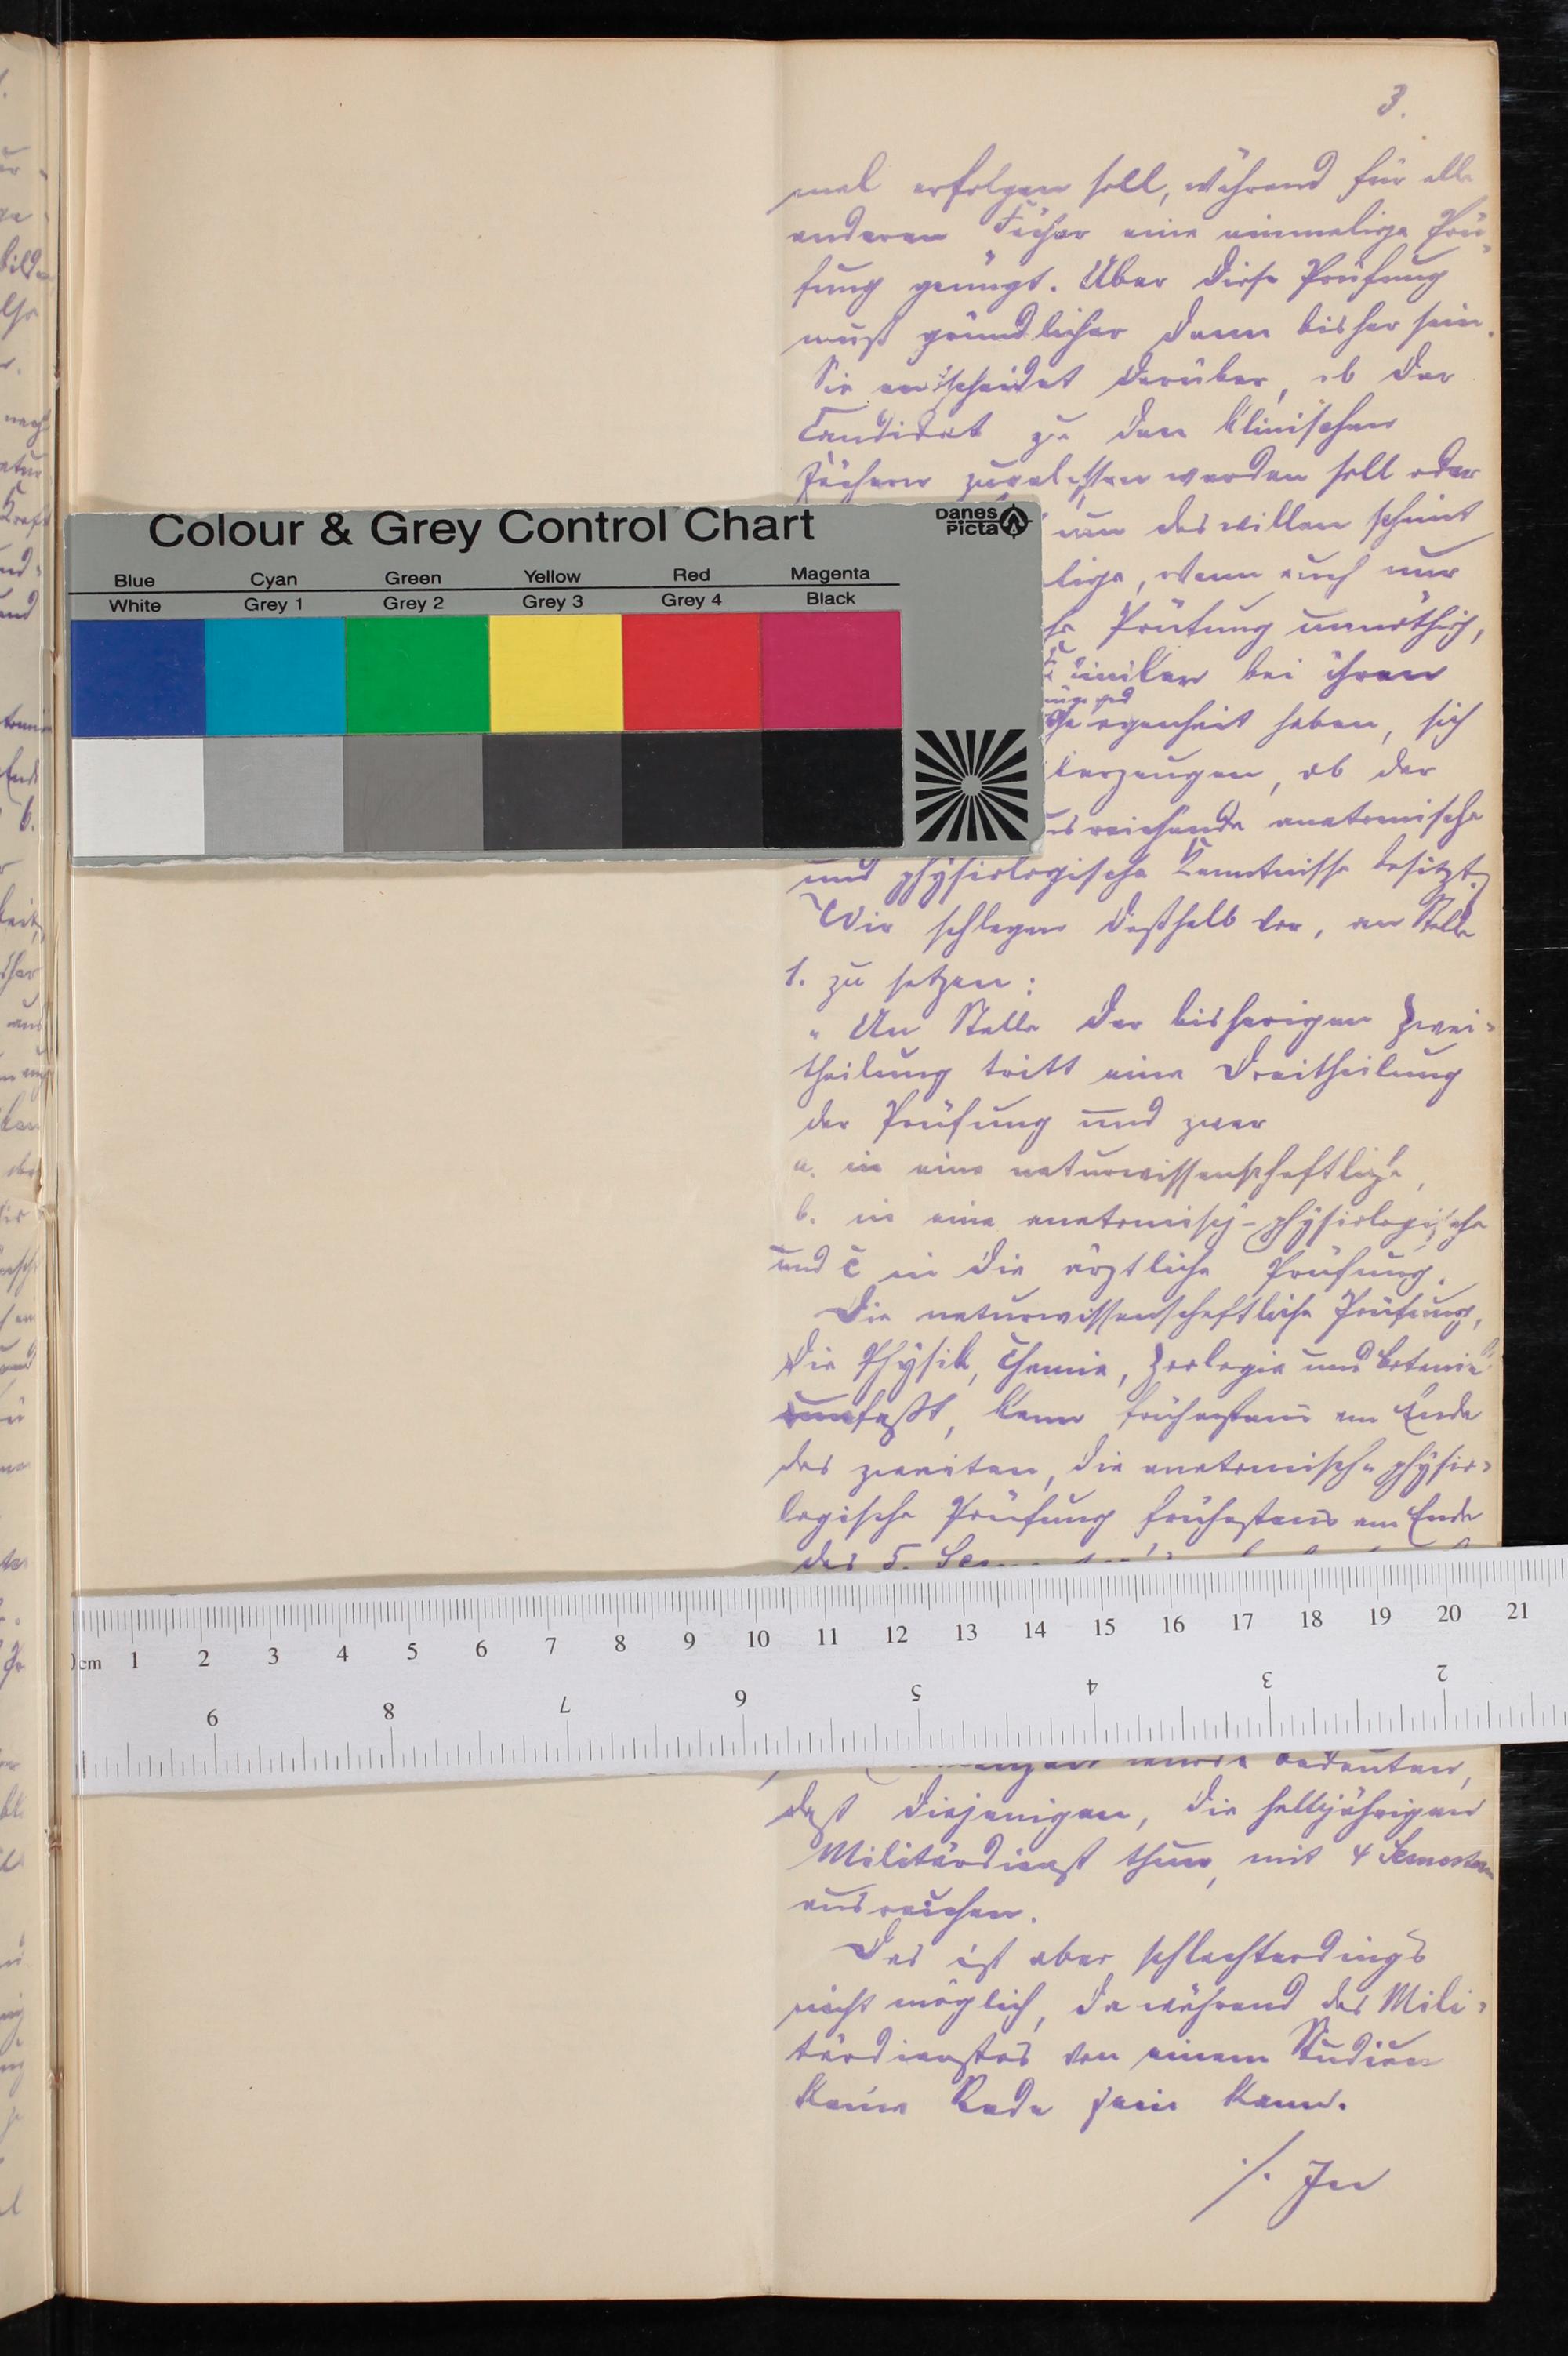 3.
mal erfolgen soll, während für alle
anderen Fächer eine einmalige Prü-
fung genügt. Aber diese Prüfung
muß gründlicher denn bisher sein.
Sie entscheidet darüber, ob der
Candidat zu den klinischen
Fächern zugelassen werden soll oder
um deswillen scheint
lige, wenn auch nur
he Prüfung unnöthig,
Kliniker bei ihren
Gelegenheit haben, sich
überzeugen, ob der
ausreichende anatomische
und physiologische Kenntnisse besitzt.
Wir schlagen deßhalb vor, an Stelle
1. zu setzen:
„An Stelle der bisherigen Zwei-
theilung tritt eine Dreitheilung
der Prüfung und zwar
a. in eine naturwissenschaftliche,
b. in eine anatomisch-physiologische
und c in die ärztliche Prüfung.
Die naturwissenschaftliche Prüfung,
die Physik, Chemie, Zoologie und Botanik
umfaßt, kann frühestens am Ende
des zweiten, die anatomisch-physio-
logische Prüfung frühestens am Ende
des 5.
würde bedeuten,
daß diejenigen, die halbjährigen
Militärdienst thun, mit 4 Semestern
ausreichen.
Das ist aber schlechterdings
nicht möglich, da während des Mili-
tärdienstes von einem Studium
keine Rede sein kann.
./. In
Colour & Grey Control Chart
Danes
Picta
Blue Cyan Green Yellow Red Magenta
White Grey 1 Grey 2 Grey 3 Grey 4 Black
cm 1 2 3 4 5 6 7 8 9 10 11 12 13 14 15 16 17 18 19 20 21
9 8 7 6 5 4 3 2